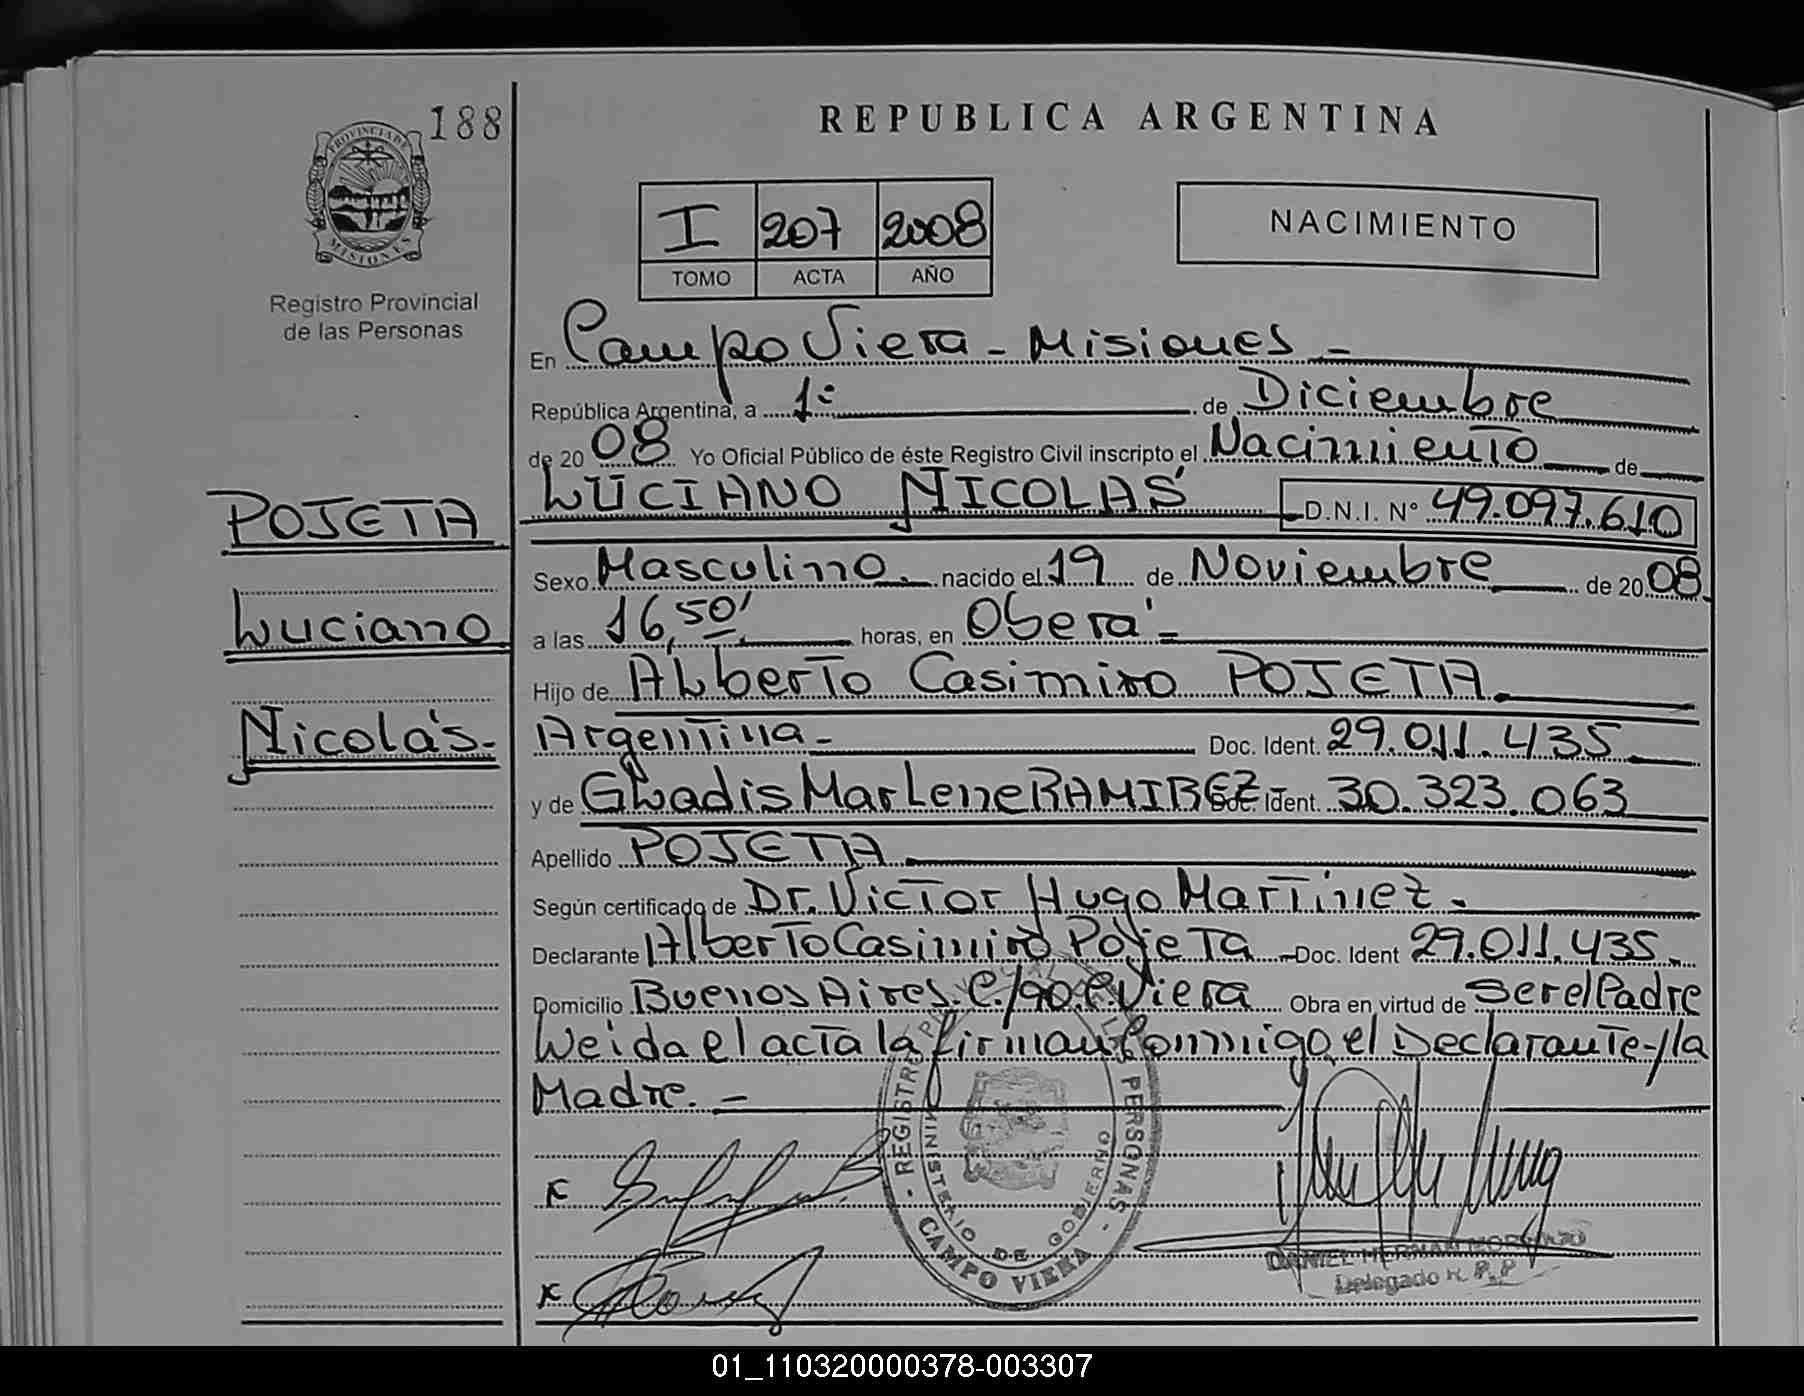 188
PROVINCIA DE
MISIONES
Registro Provincial
de las Personas
REPUBLICA ARGENTINA
I 207 2008
TOMO ACTA AÑO
NACIMIENTO
En Campo Viera - Misiones -
República Argentina, a 1º de Diciembre
de 2008 Yo Oficial Público de éste Registro Civil inscripto el Nacimiento de
LUCIANO NICOLÁS D.N.I. Nº 49.097.610
POJETA
Luciano
Nicolás.-
Sexo Masculino. nacido el 19 de Noviembre de 2008
a las 16,50' horas, en Oberá -
Hijo de Alberto Casimiro POJETA
Argentina - Doc. Ident. 29.011.435
y de Gladis Marlene RAMIREZ - Doc. Ident. 30.323.063
Apellido POJETA
Según certificado de Dr. Victor Hugo Martínez.
Declarante Alberto Casimiro Pojeta - Doc. Ident 29.011.435.
Domicilio Buenos Aires. C./90. C. Viera Obra en virtud de ser el Padre
Leida el acta la firman Conmigo, el Declarante-/la
Madre. -
REGISTRO PROVINCIAL DE LAS PERSONAS
MINISTERIO DE GOBIERNO
CAMPO VIERA
DANIEL HERNAN
Delegado R. P. P
01_110320000378-003307